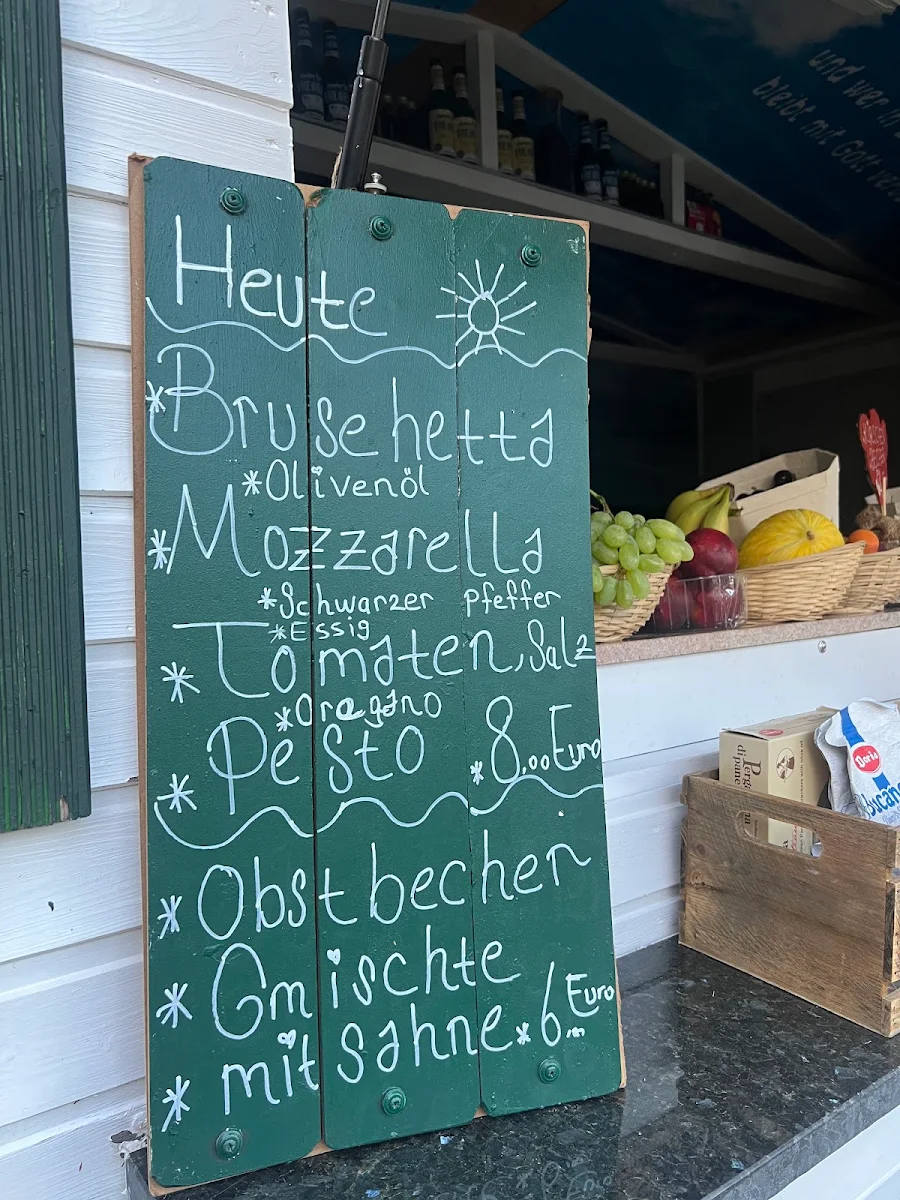 Heute
*Brusehetta
*Olivenöl
*Mozzarella
*Schwarzer Pfeffer
*Essig
*Tomaten, Salz
*Oregano
*Pesto *8.00 Euro
*Obstbechen
*Gmischte
*mit sahne*6.00 Euro
und wer in
bleibt mit Gott
Doria
Bucan